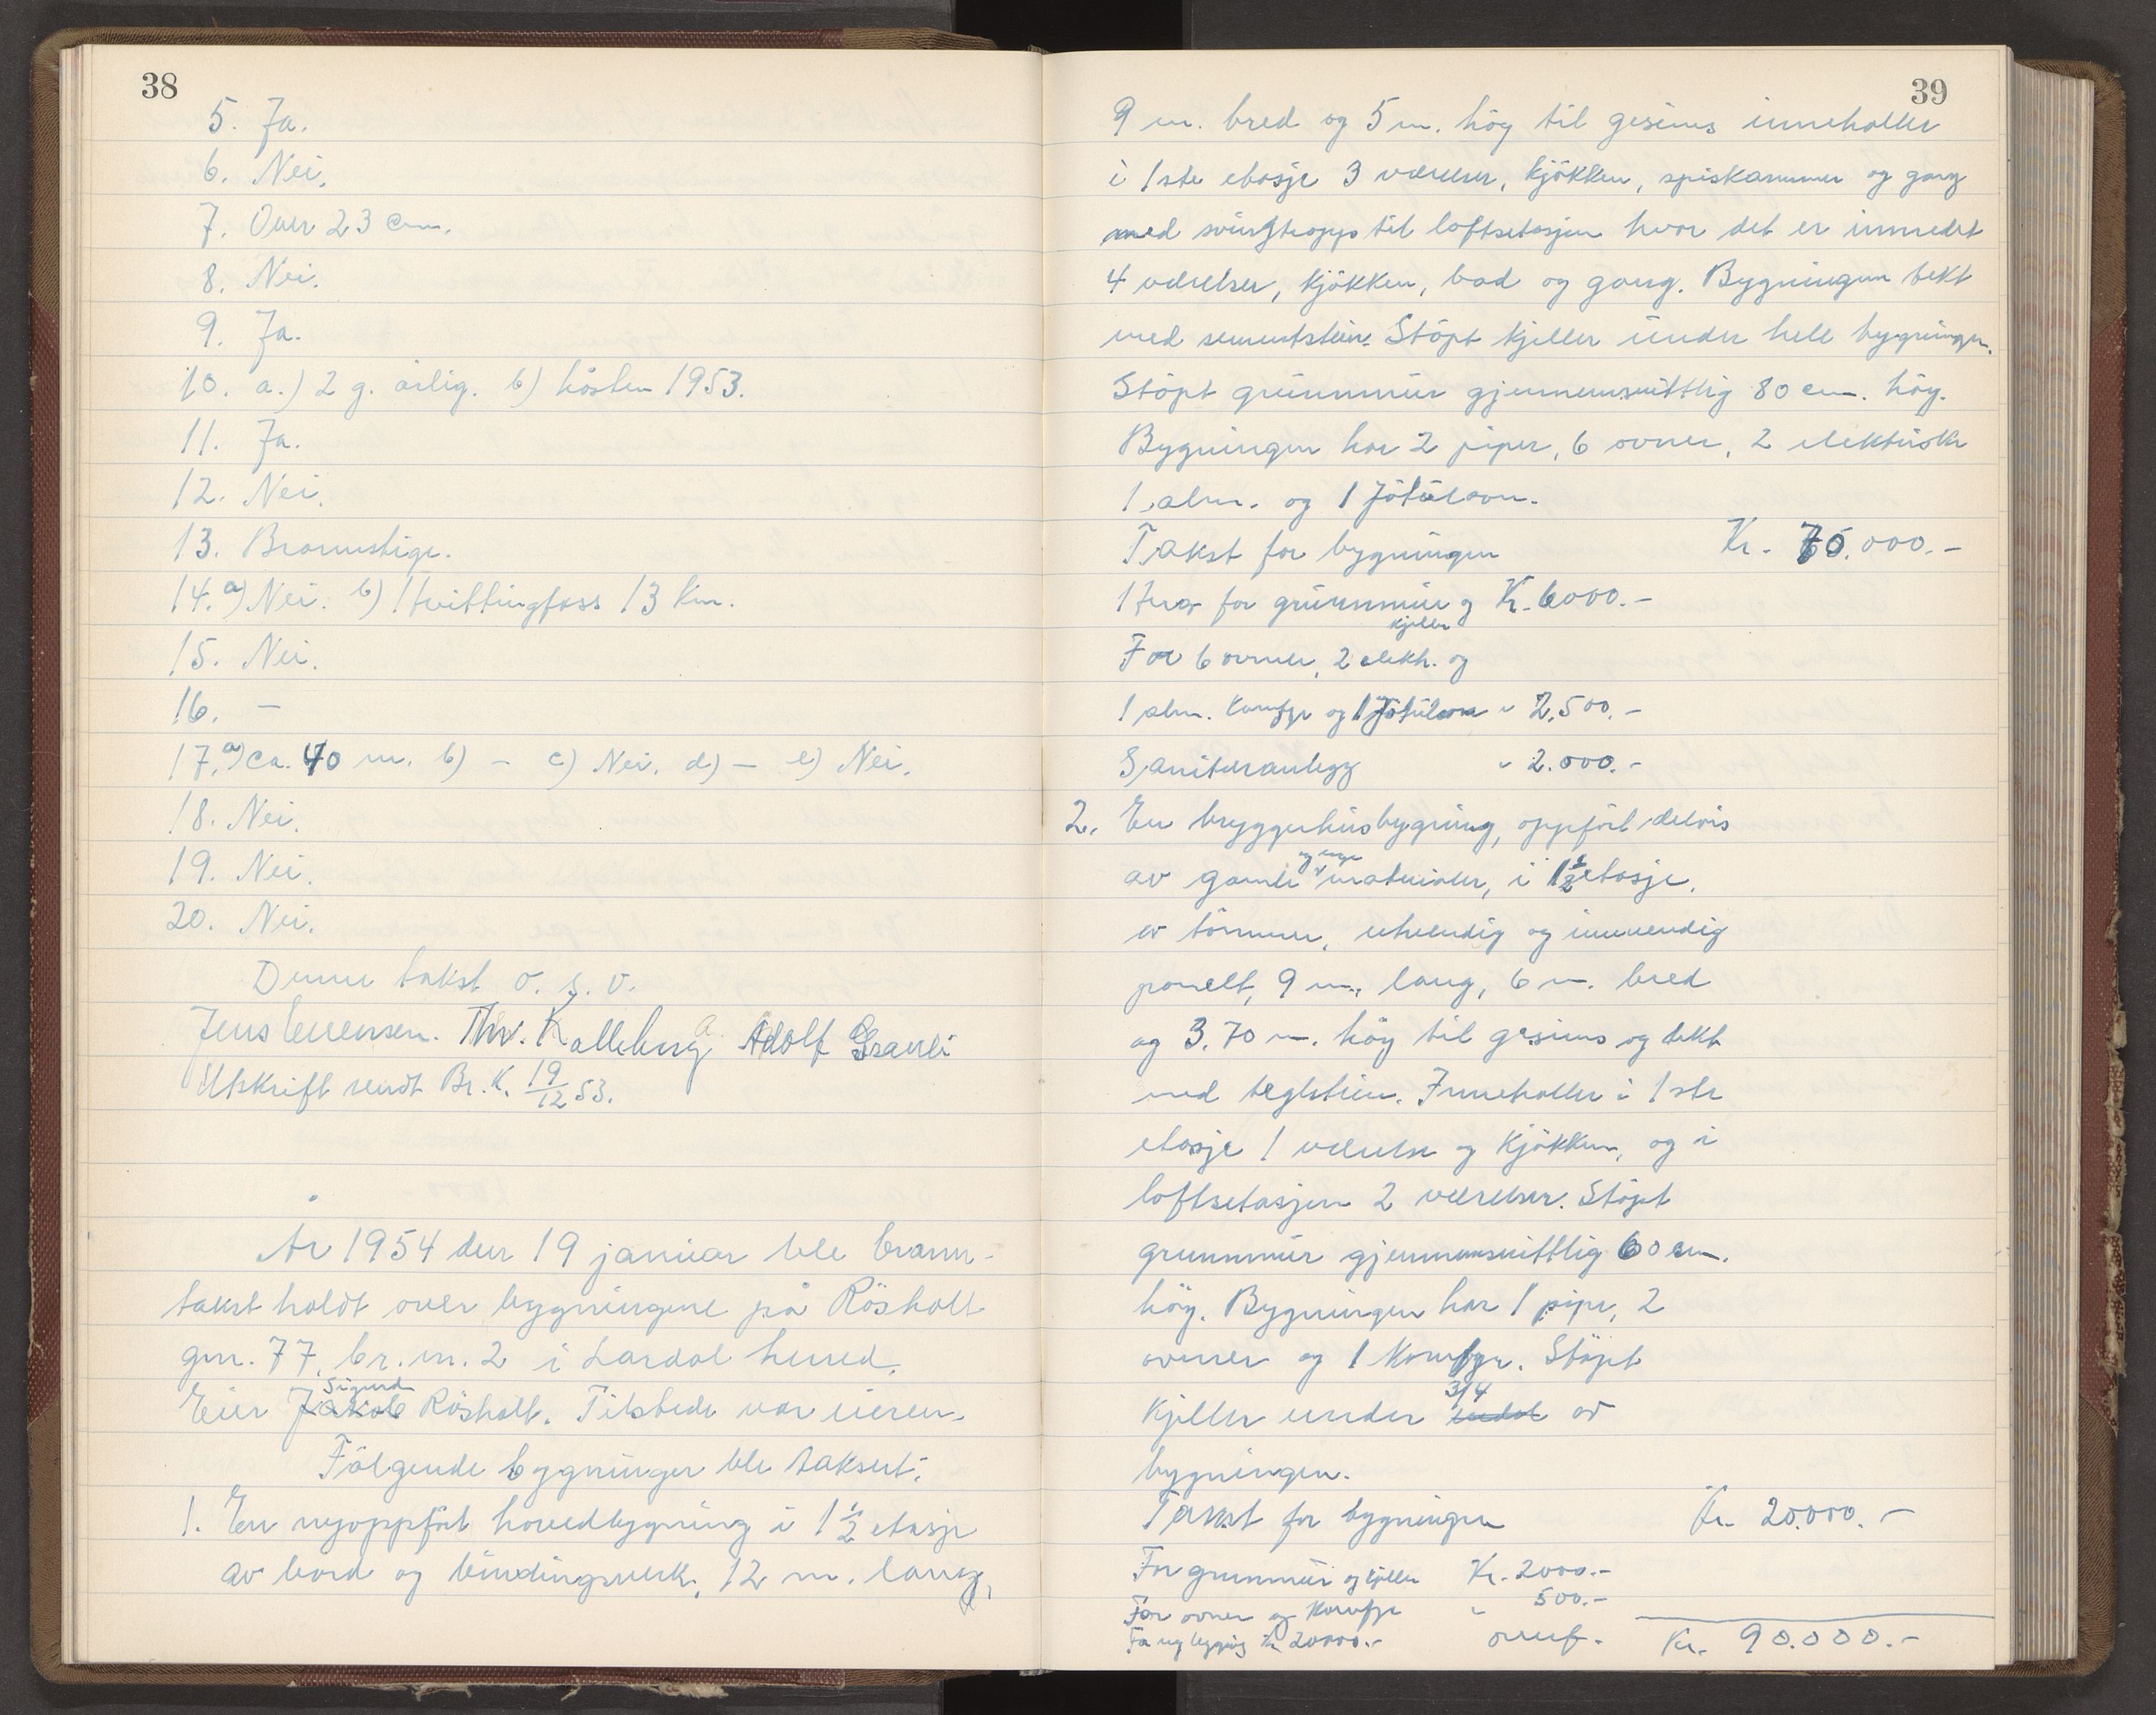 38
5. Ja.
6. Nei.
7. Over 23 cm.
8. Nei.
9. Ja.
10. a.) 2 g. årlig. b) hösten 1953.
11. Ja.
12. Nei.
13. Brannstige.
14. a) Nei. b) Hvittingfoss 13 km.
15. Nei.
16. —
17. a) ca. 40 m. b) — c) Nei. d) — e) Nei.
18. Nei.
19. Nei.
20. Nei.
Denne takst o. s. v.
Jens Evensen. Thv. Kalleberg Adolf Granli
Utskrift sendt Br. K. 19/12 53.
År 1954 den 19 januar ble brann-
takst holdt over bygningene på Rösholt
gnr. 77, br. nr. 2 i Lardal herred.
Sigurd
Eier Jakob Rösholt. Tilstede var eieren.
Fölgende bygninger ble taksert:
1. En nyoppfört hovedbygning i 1 1/2 etasje
av bord og bindingsverk, 12 m. lang,
39
9 m. bred og 5 m. hög til gesims inneholder
i 1ste etasje 3 værelser, kjökken, spiskammer og gang
med svingtrapp til loftsetasjen hvor det er innredet
4 værelser, kjökken, bad og gang. Bygningen tekt
med sementstein. Stöpt kjeller under hele bygningen.
Stöpt grunnmur gjennemsnittlig 80 cm. hög.
Bygningen har 2 piper, 6 ovner, 2 elektriske
1 alm. og 1 Jötulovn.
Takst for bygningen Kr. 70.000.-
Herav for grunnmur og Kr. 6000.-
kjeller
For 6 ovner, 2 elektr. og
1 alm. komfyr og 1 Jötulovn " 2.500.-
Sanitæranlegg " 2.000.-
2. En bryggerhusbygning, oppfört delvis
og nye
av gamle materialer, i 1 1/2 etasje,
av tömmer, utvendig og innvendig
panelt, 9 m. lang, 6 m. bred
og 3.70 m. hög til gesims og tekt
med teglstein. Inneholder i 1ste
etasje 1 værelse og kjökken, og i
loftsetasjen 2 værelser. Stöpt
grunnmur gjennemsnittlig 60 cm.
hög. Bygningen har 1 pipe, 2
ovner og 1 komfyr. Stöpt
3/4
kjeller under av
bygningen.
Takst for bygningen Kr. 20.000.-
For grunnmur og kjeller Kr. 2000.-
For ovner og komfyr " 500.-
For ny bygning Kr. 20000.- overf. Kr. 90.000.-